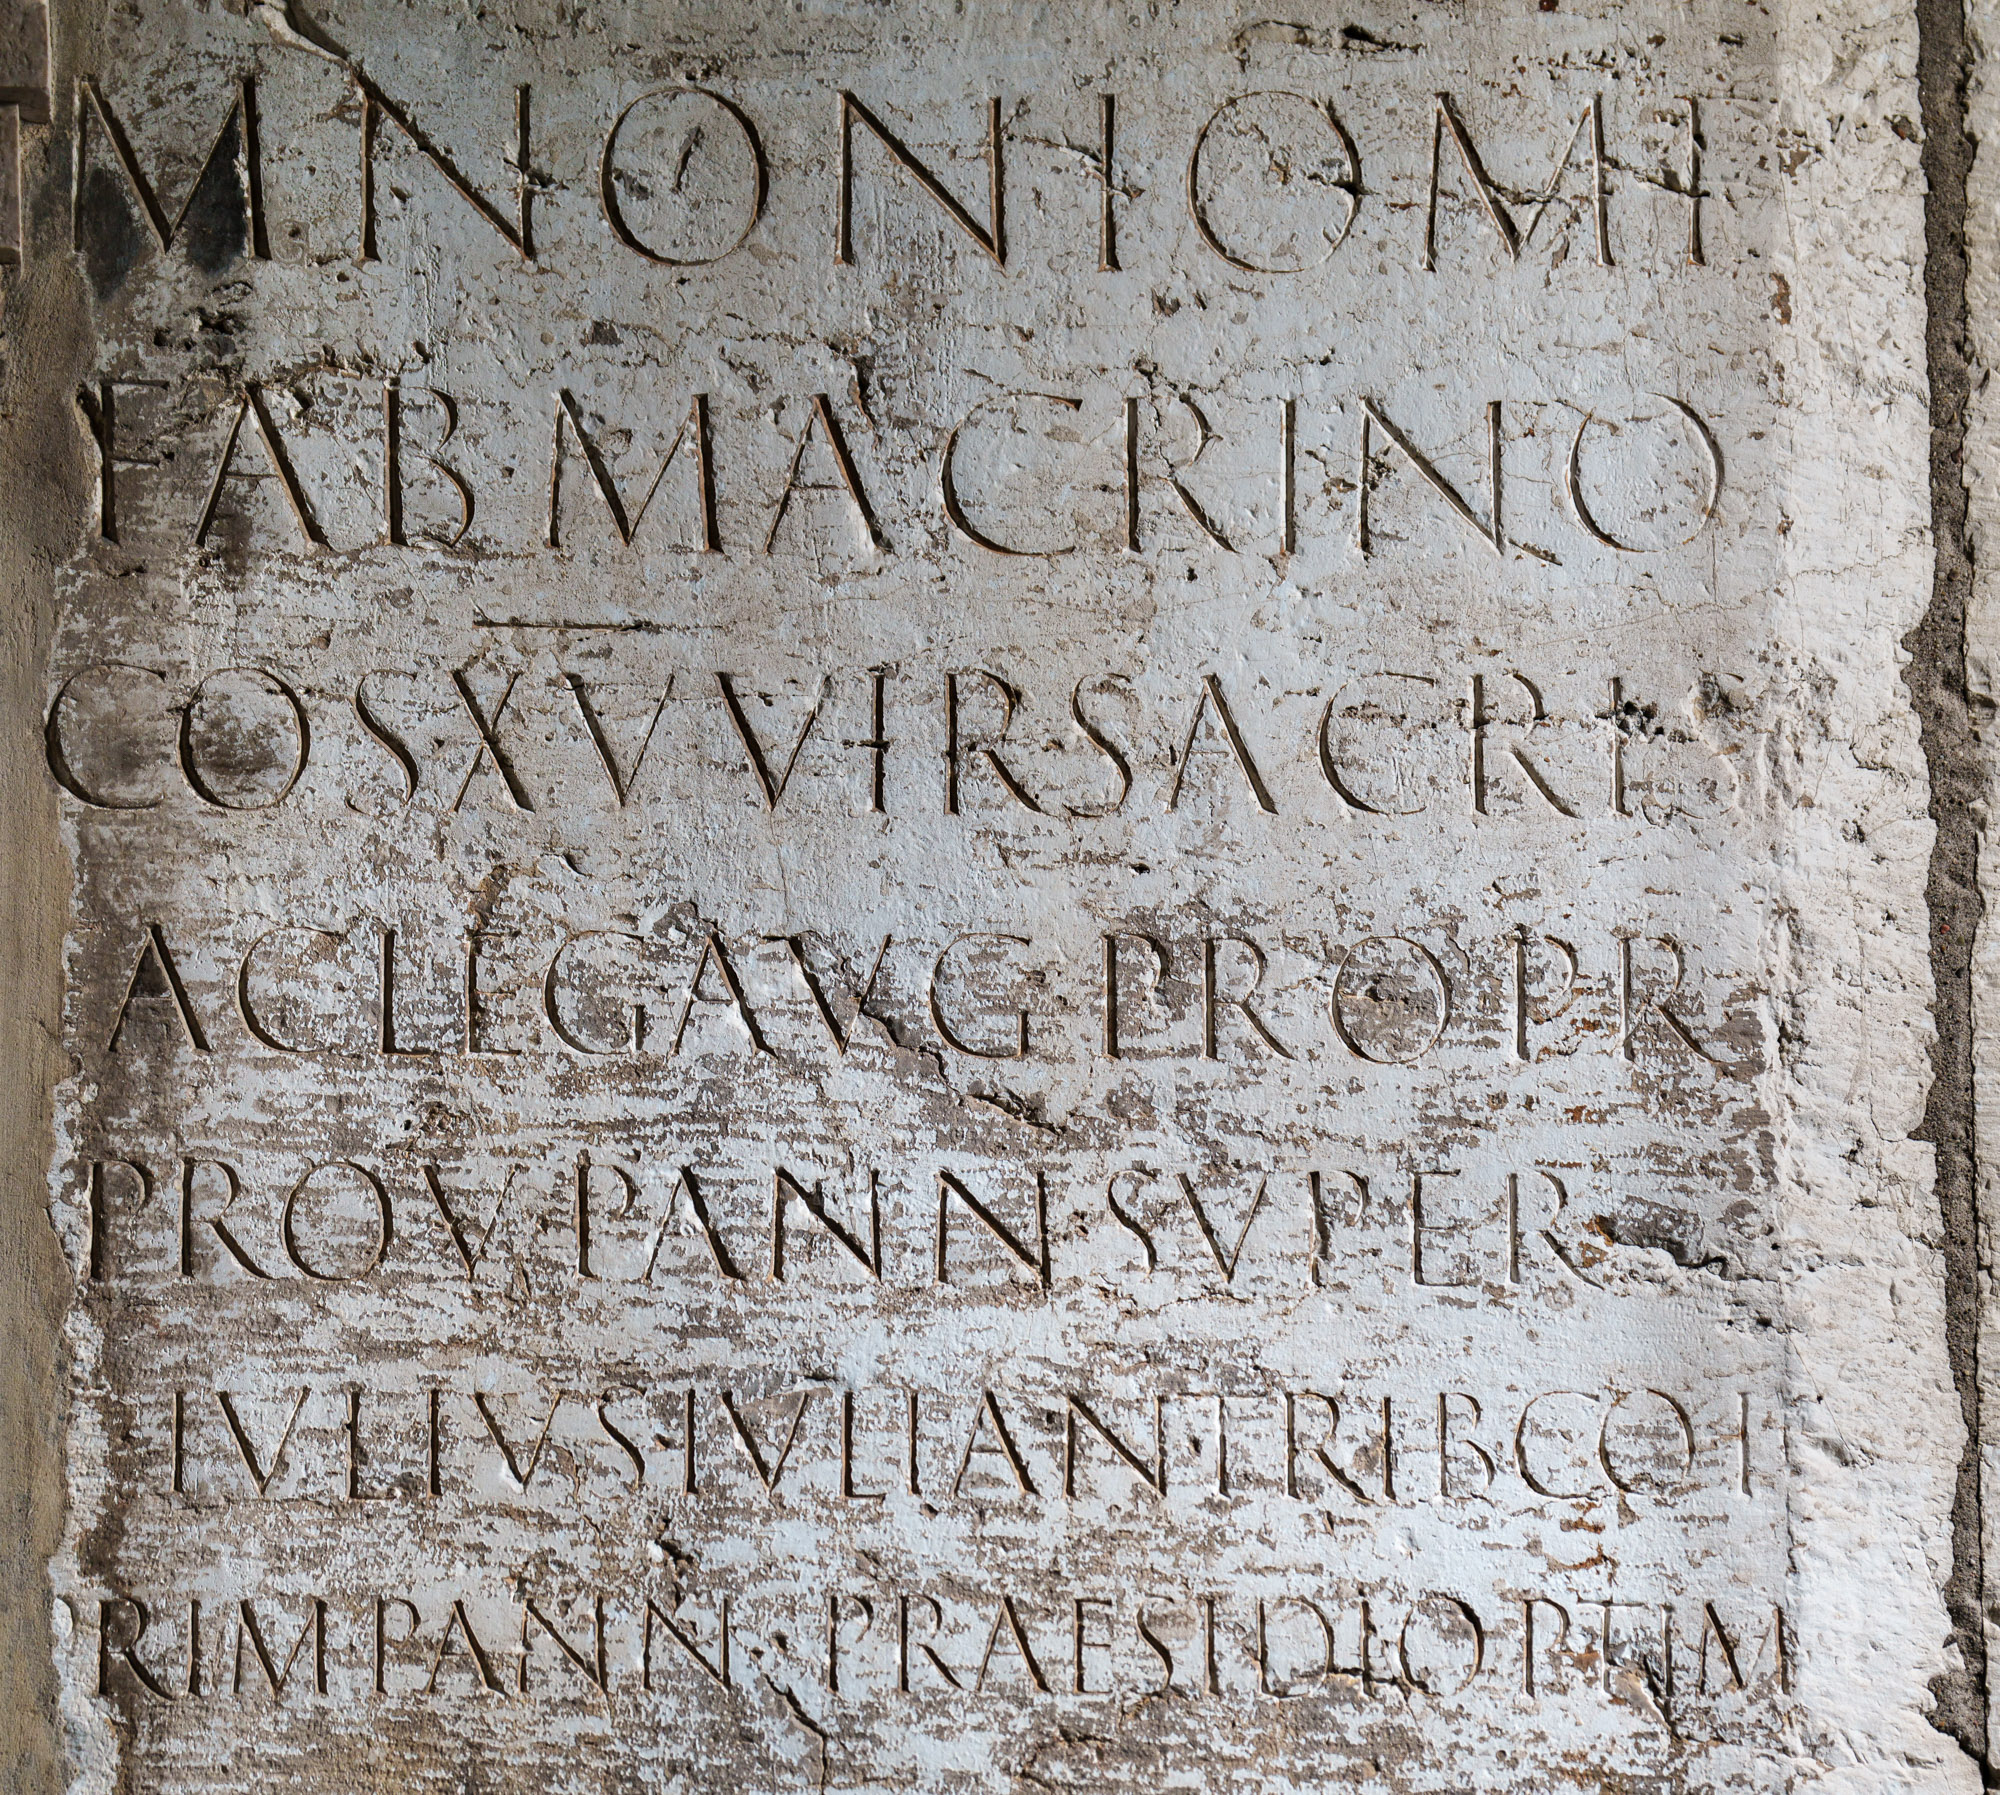 M NONIO M F
FAB MACRINO
COS X̅V̅ VIR SACRIS
AC LEG AVG PRO PR
PROV PANN · SVPER
IVLIVS · IVLIAN TRIB COI
PRIM PANN · PRAESIDI OPTIM